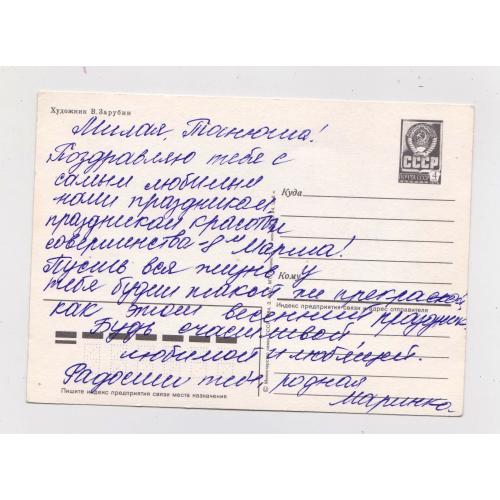 Художник В. Зарубин
Милая, Танюша!
Поздравляю тебя с
самым любимым
нами праздником
праздником красоты
совершенства - 8м Марта!
Пусть вся жизнь у
тебя будет такой же прекрасной,
как этот весенний праздник
Будь счастливой
любимой и любящей.
Радости тебе родная
Маринка
СССР
ПОЧТА СССР
4
Куда
Кому
Индекс предприятия связи и адрес отправителя
Пишите индекс предприятия связи места назначения